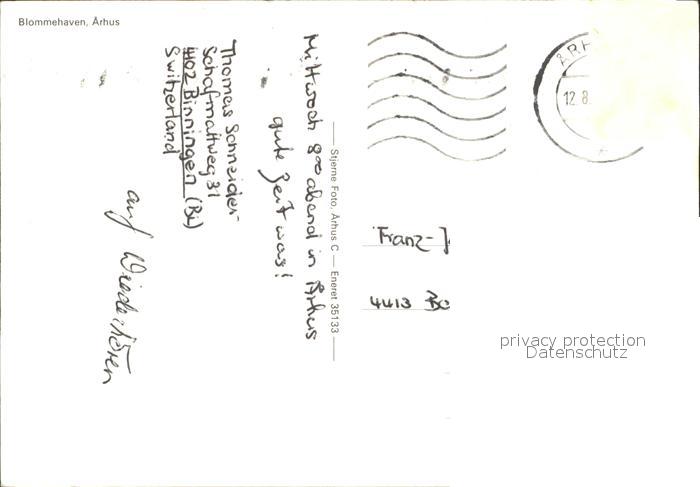 Blommehaven, Århus
Mittwoch 8°° abend in Århus
gute Zeit was!
Thomas Schneider
Schafmattweg 31
4102 Binningen (BL)
Switzerland
auf Wiederhören
Stjerne Foto, Århus C — Eneret 35133
ÅRH
12.8.
Franz-J
4413 Be
privacy protection
Datenschutz